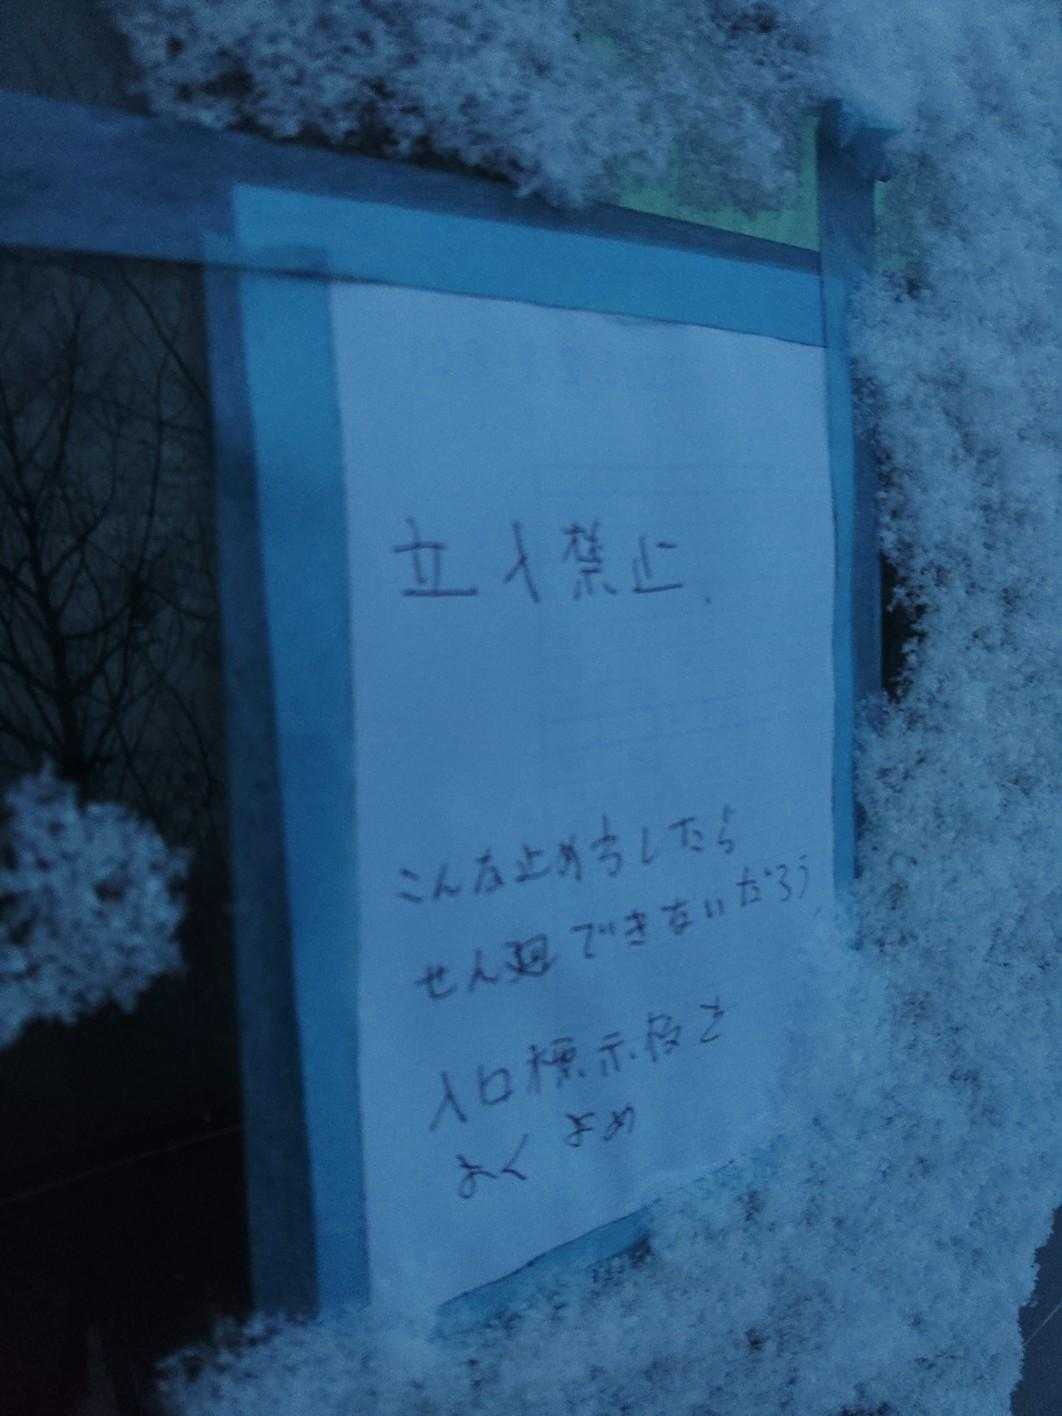 立入禁止.
こんな止め方したら
せん廻できないだろう
入口標示板を
よくよめ